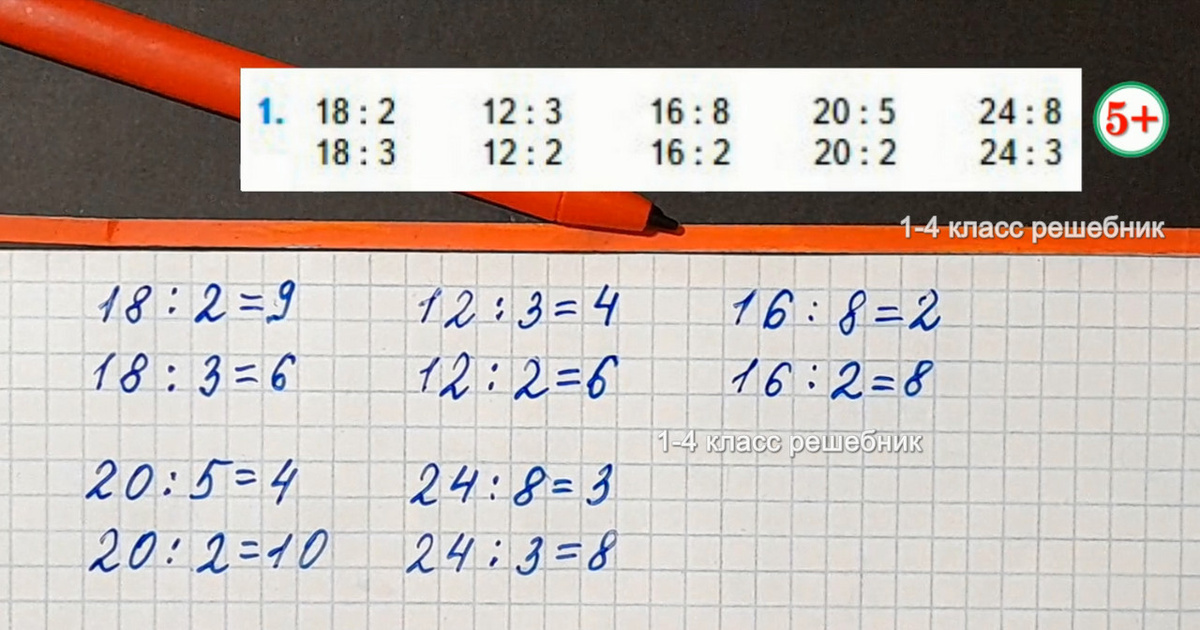 1. 18 : 2 12 : 3 16 : 8 20 : 5 24 : 8
18 : 3 12 : 2 16 : 2 20 : 2 24 : 3
5+
1-4 класс решебник
18 : 2 = 9 12 : 3 = 4 16 : 8 = 2
18 : 3 = 6 12 : 2 = 6 16 : 2 = 8
1-4 класс решебник
20 : 5 = 4 24 : 8 = 3
20 : 2 = 10 24 : 3 = 8